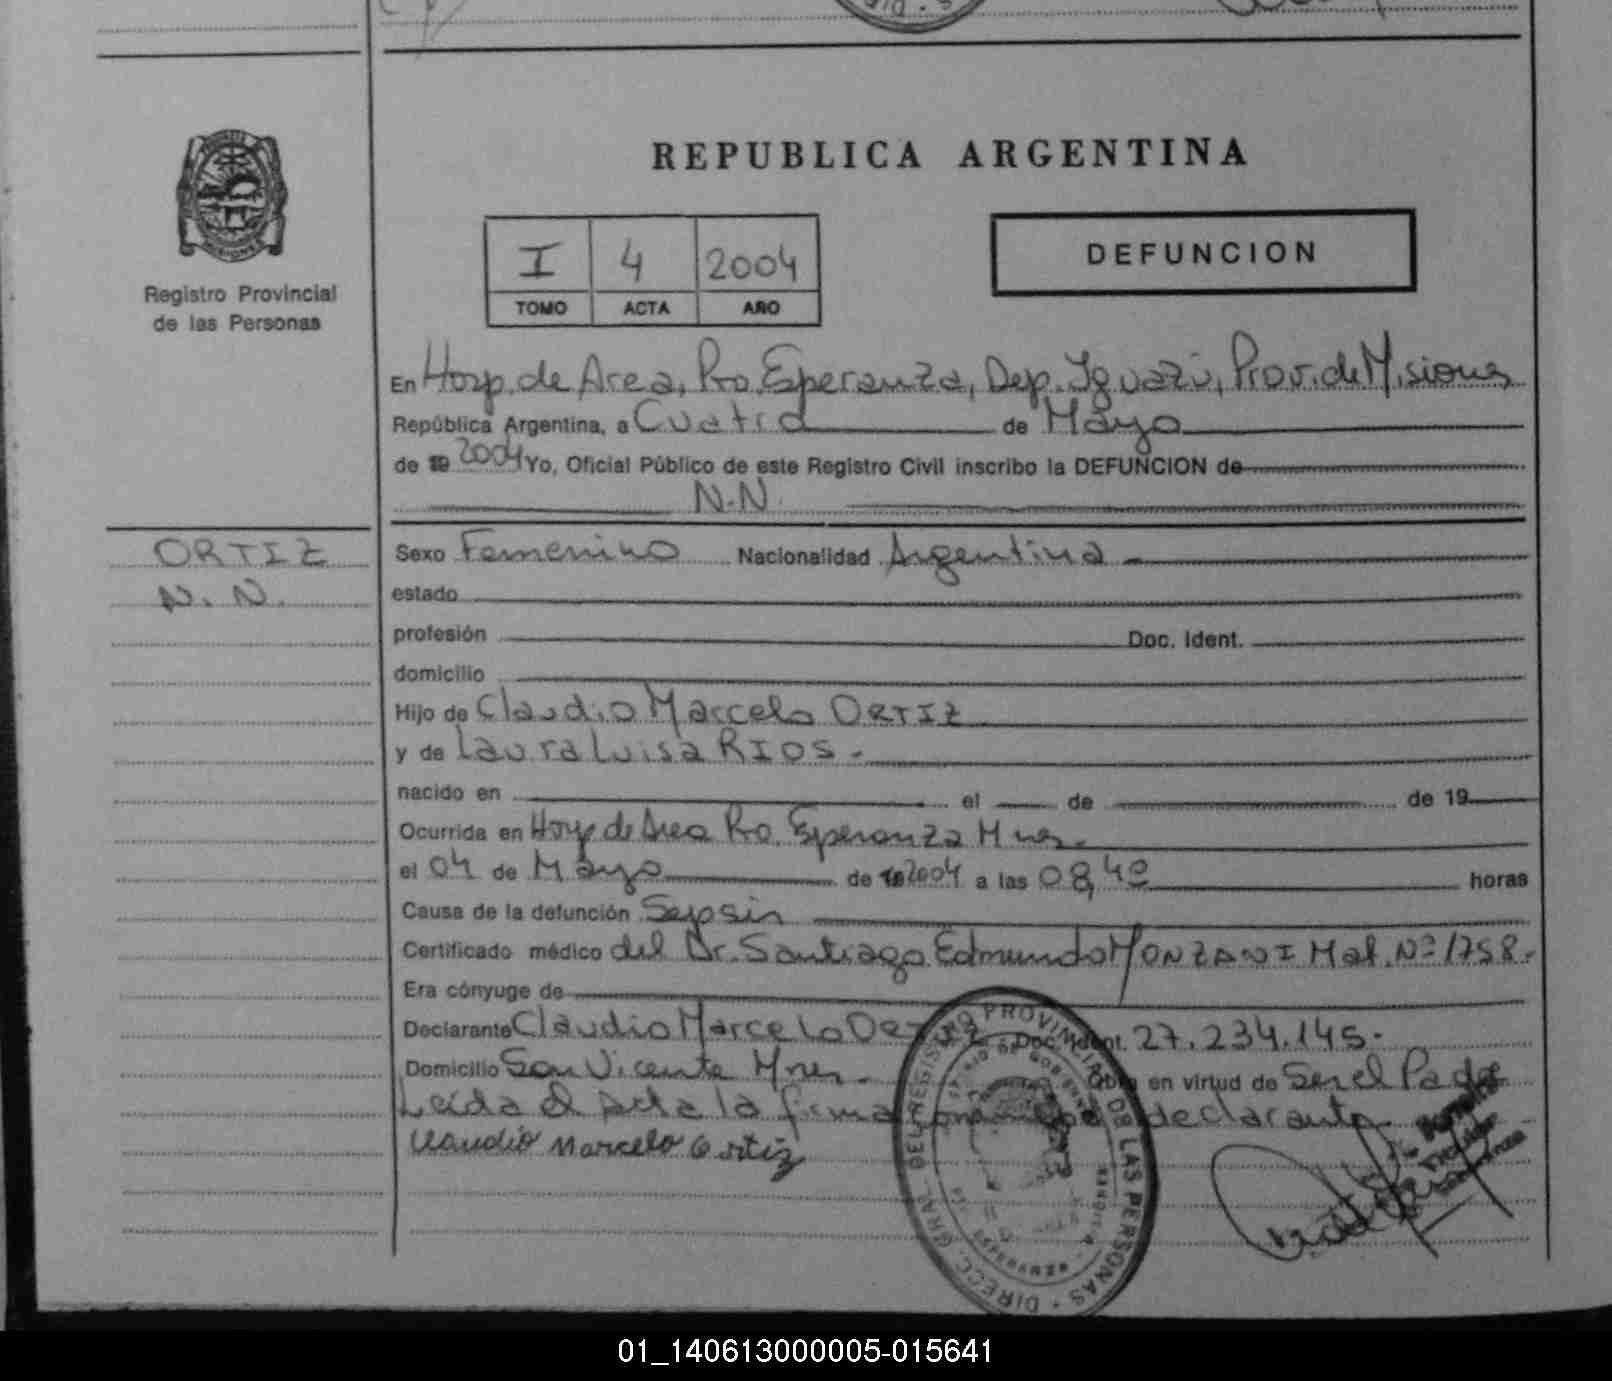 REPUBLICA ARGENTINA
I 4 2004
TOMO ACTA AÑO
DEFUNCION
Registro Provincial
de las Personas
En Hosp. de Area, Pto. Esperanza, Dep. Iguazú, Prov. de Misiones
República Argentina, a Cuatro de Mayo
de 19 2004 Yo, Oficial Público de este Registro Civil inscribo la DEFUNCION de
N.N.
ORTIZ
N. N.
Sexo Femenino Nacionalidad Argentina
estado
profesión Doc. Ident.
domicilio
Hijo de Claudio Marcelo ORTIZ
y de Laura Luisa RIOS.
nacido en el de de 19
Ocurrida en Hosp. de Area Pto. Esperanza Mnes.
el 04 de Mayo de 19 2004 a las 08,40 horas
Causa de la defunción Sepsis
Certificado médico del Dr. Santiago Edmundo MONZANI Mat. Nº 1758.
Era cónyuge de
Declarante Claudio Marcelo Ortiz Doc. Ident. 27.234.145.
Domicilio San Vicente Mnes. Obra en virtud de Ser el Padre
Leida el Acta la firma declarante
Claudio Marcelo Ortiz
DIRECC. GRAL. DEL REGISTRO PROVINCIAL DE LAS PERSONAS
01_140613000005-015641